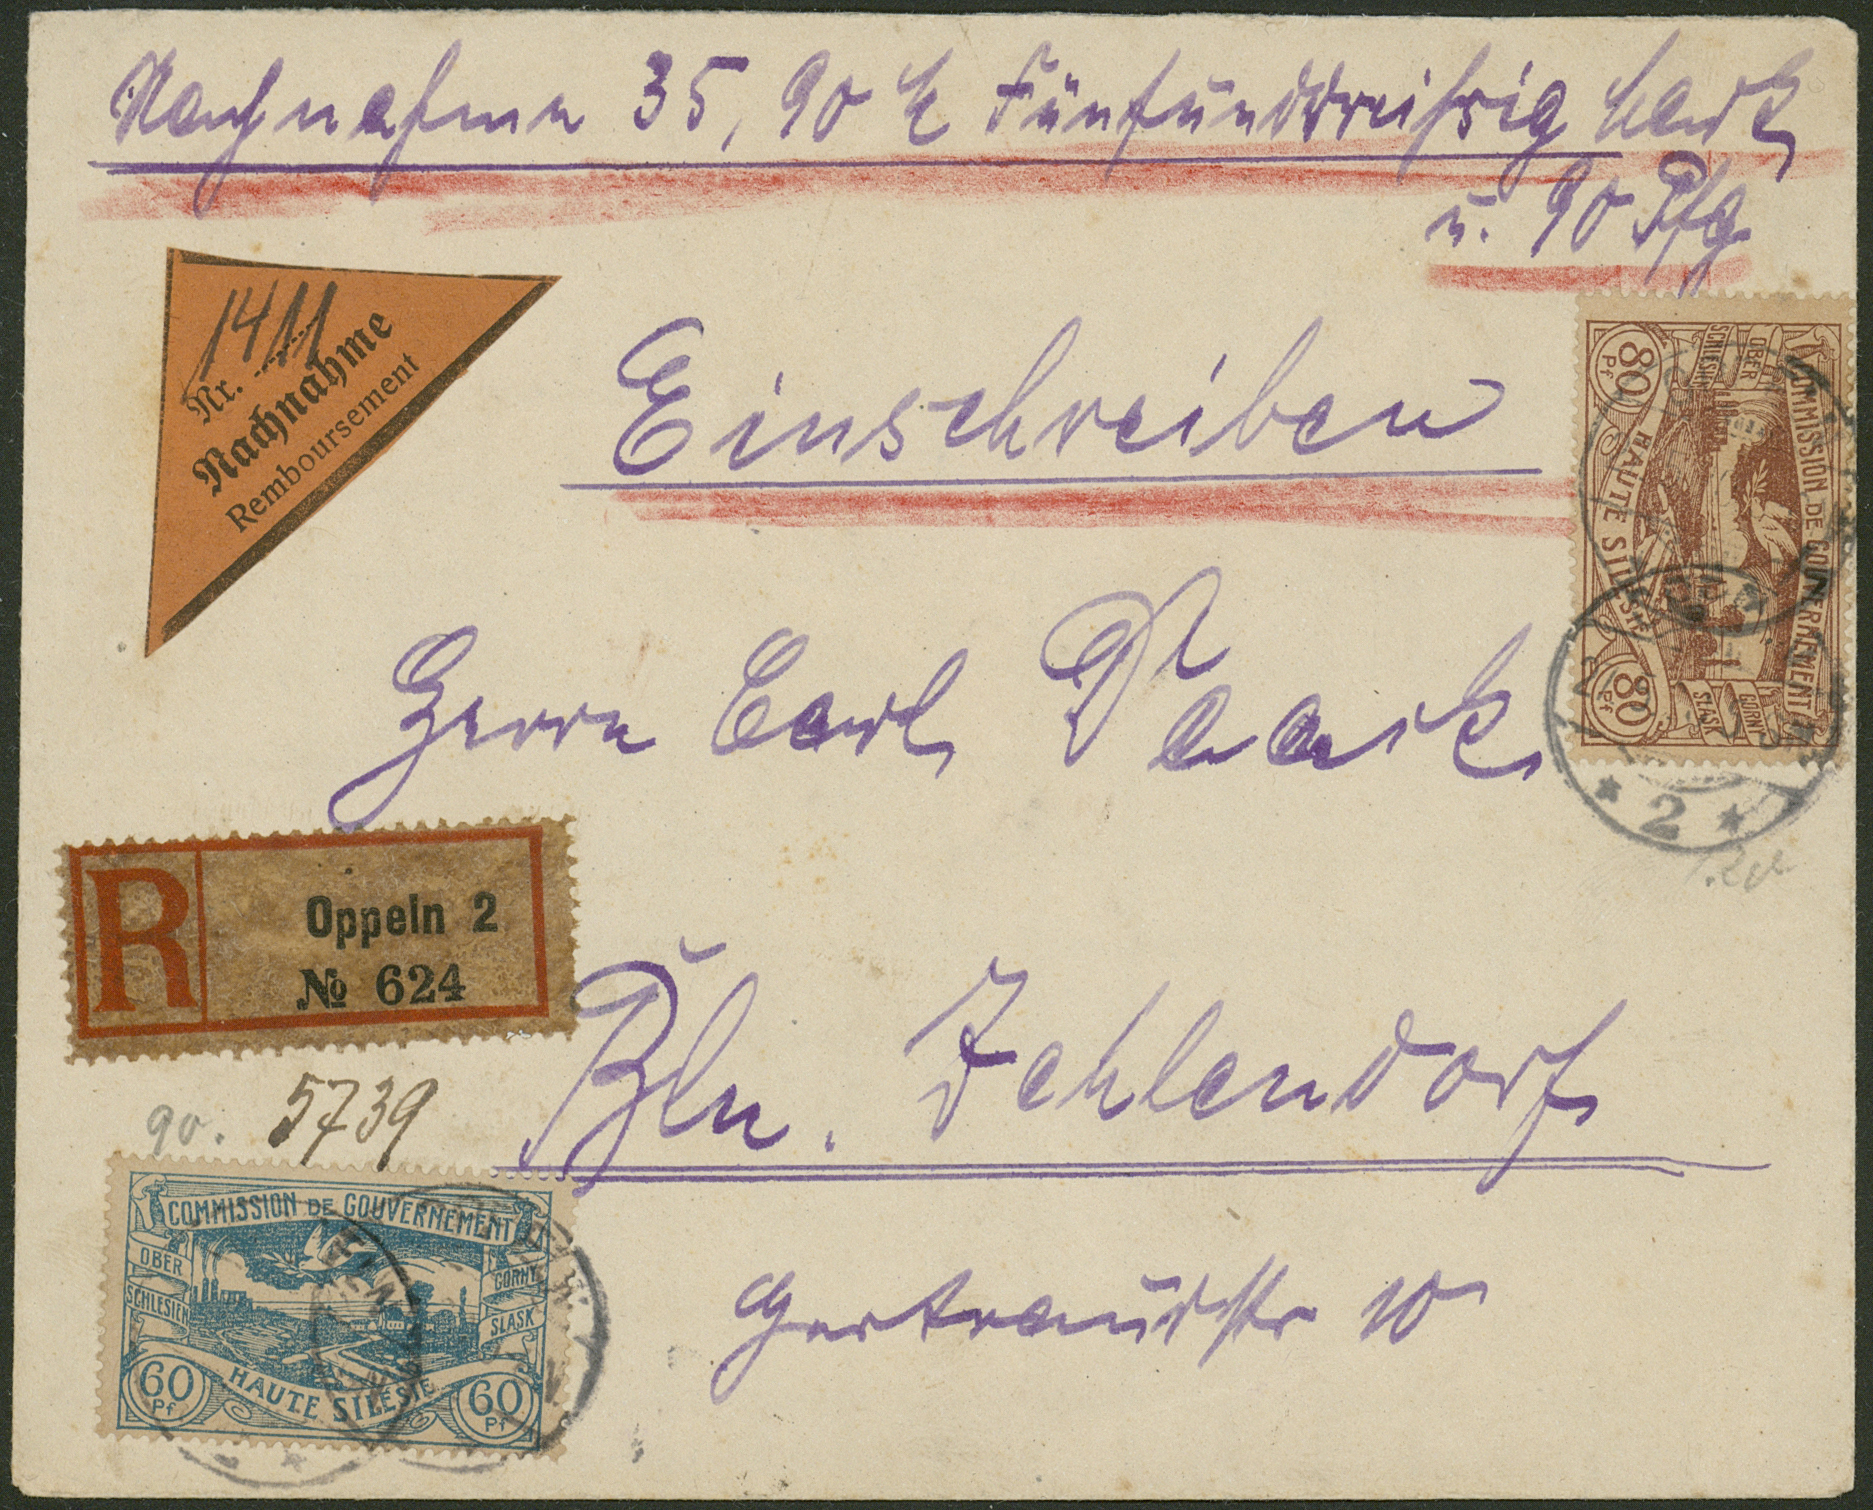 Nachnahme 35,90 M Fünfunddreißig Mark
u. 90 Pfg
Nr. 1411
Nachnahme
Remboursement
Einschreiben
COMMISSION DE GOUVERNEMENT
OBER
SCHLESIEN
GORNY
SLASK
80 Pf
HAUTE SILESIE
80 Pf
Herrn Carl
R
Oppeln 2
№ 624
* 2 *
90. 5739
Bln. Zehlendorf
Gertraudstr 10
COMMISSION DE GOUVERNEMENT
OBER
SCHLESIEN
GORNY
SLASK
60 Pf
HAUTE SILESIE
60 Pf